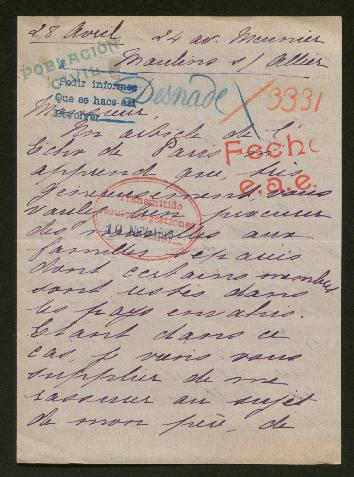 28 Avril 24 av. Meunier
Moulins s/ Allier
POBLACIÓN
CIVIL
Pedir informes
Que se hace así
Devolver
Desnade 3931
Monsieur
Un article de l'
Echo de Paris
apprend que très
généreusement vous
voulez bien procurer
des nouvelles aux
familles
dont certains membres
sont restés dans
les pays envahis.
Etant dans ce
cas, je viens vous
supplier de me
rassurer au sujet
de mon père, de
Fecho
e.a.e.
transmitido
resultado gestiones
10